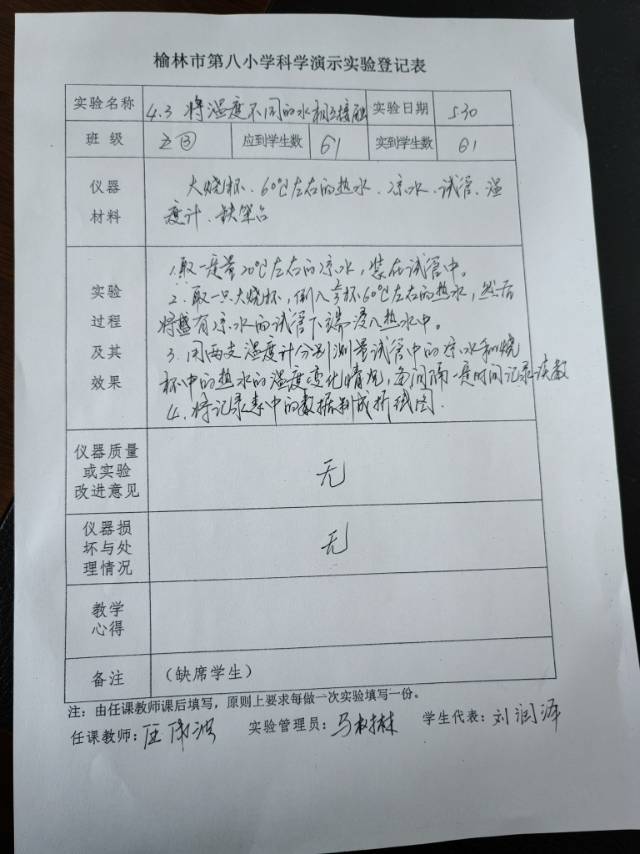 榆林市第八小学科学演示实验登记表
实验名称 4.3 将温度不同的水相互接触 实验日期 5.30
班 级 五③ 应到学生数 61 实到学生数 61
仪器材料 大烧杯、60℃左右的热水、凉水、试管、温
度计、铁架台
实验过程及其效果 1.取一定量20℃左右的凉水，装在试管中。
2.取一只大烧杯，倒入半杯60℃左右的热水，然后
将盛有凉水的试管下端浸入热水中。
3.用两支温度计分别测量试管中的凉水和烧
杯中的热水的温度变化情况，每间隔一定时间记录读数
4.将记录表中的数据制成折线图.
仪器质量或实验改进意见 无
仪器损坏与处理情况 无
教学心得
备注 （缺席学生）
注：由任课教师课后填写，原则上要求每做一次实验填写一份。
任课教师： 实验管理员：马 林 学生代表：刘润泽